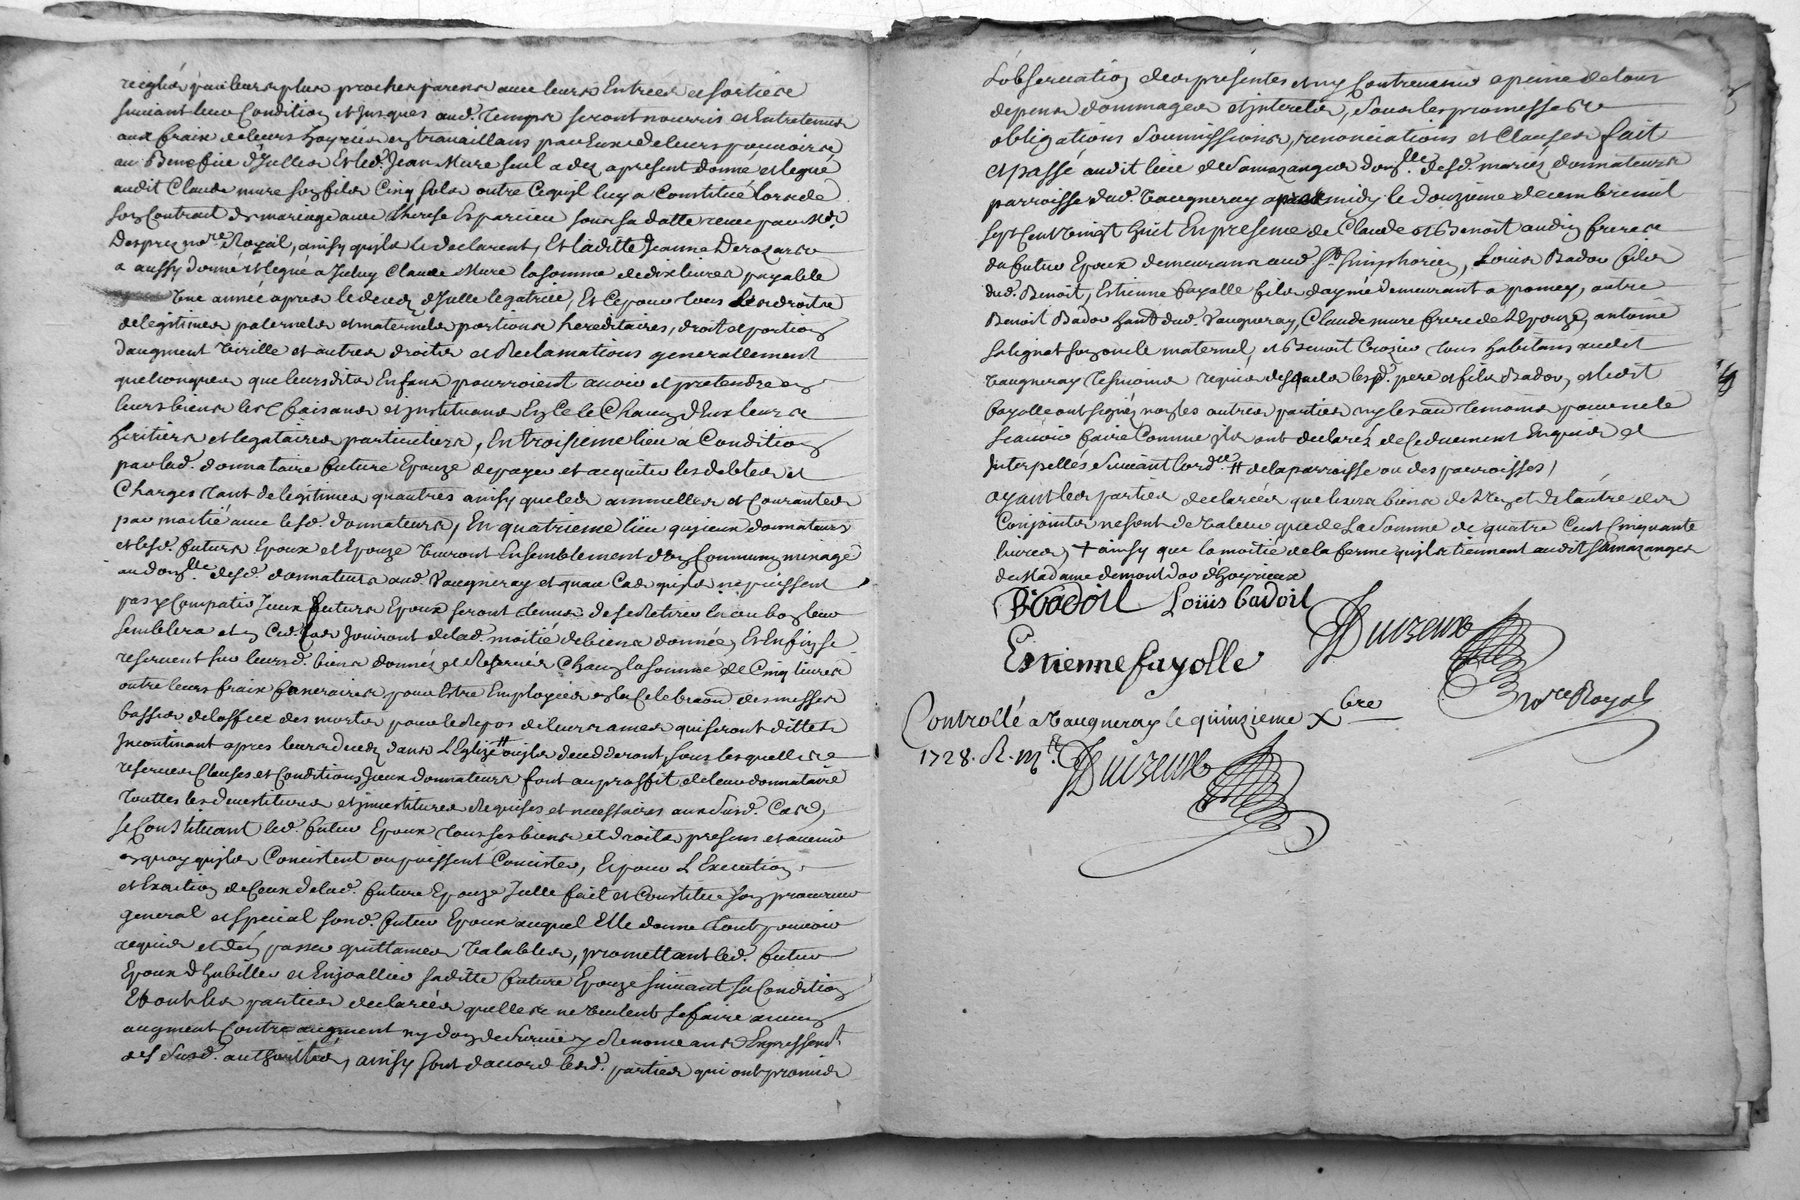 reiglés par leurs plus proches parens avec leurs Entrées et sorties
suivant leur Condition et Jusques aud. temps seront nourris et Entretenus
aux fraix de leurs hoyries en travaillans par Eux de leurs pouvoirs
au Benefice d'Jcelles Et led. Jean Mure seul a dez apresent donné et legué
audit Claude mure son fils Cinq sols outre Cequjl luy a Constitué lors de
son Contrat de mariage avec Therese Esparcieu sous sa datte receu par Me.
Desprez nore. Royal, ainsy qujls le declarent, Et laditte Jeanne Derozarse
a aussy donné et legué a Jceluy Claude Mure la somme de dix livres payable
Une année apres le decez d'Jcelle legatrice, Et Ce pour tous Les droits
de legitimes paternels et maternels portions hereditaires, droit et portion
daugment Virille et autres droits et Reclamations generallement
quelconques que leursdits Enfans pourroient avoir et pretendre en
leurs biens les faisans et instituans En Ce le Chacun d'Eux leurs
heritiers et legataires particuliers, En troisieme lieu a Condition
par lad. donnataire future Epouze de payer et acquitter les debtes et
Charges tant de legitimes quautres ainsy que les annuelles et Courantes
par moitié avec lesd. donnateurs, En quatrieme lieu qu jceux donnateurs
et lesd. futurs Epoux et Epouze Vivront Ensemblement d'Un Commun menage
au domlle. desd. donnateurs aud. Vaugneray et quau Cas qujls ne puissent
pas y Compatir Jceux futurs Epoux seront tenus de se Retirer la ou bon leur
semblera et en Ced. Cas Jouiront de lad. moitié de biens donnée, Et Enfin se
reservent sur leursd. biens donnés et Reservés Chacun la somme de Cinq livres
outre leurs fraix funeraires pour Estre Employées en la Celebraon. des messes
basses de loffice des morts pour le Repos de leurs ames qui seront dittes
Jncontinant apres leurs decez dans L'Eglize # ou jls decedderont, sous lesquelles
reserves Clauses et Conditions Jceux donnateurs font au proffit de leur donnataire
touttes les devestitures et jnvestitures Requises et necessaires aux susd. Cas,
se Constituant led. futur Epoux tous ses biens et droits presens et avenir
en quoy qujls Concistent ou puissent Concister, Et pour L'Execution
et Exaction de Ceux de lad. future Epouze Jcelle fait et Constitue son procureur
general et special sond. futur Epoux auquel Elle donne tout pouvoir
requis et d'en passer quittances Valables, promettant led. futur
Epoux d'habiller et Enjoallier saditte future Epouze suivant sa Condition
Et ont les parties declarées quelles ne Veulent se faire aucun
augment Contre augment ny don de survie y Renonceant Expressemt.
des susd. authorités, ainsy sont daccord lesd. parties qui ont promis
L'observation des presentes et ny Contrevenir a peine de tous
depens dommages et jnterets, sous les promesses
obligations soumissions, renonciations et Clauses fait
et passé audit lieu de Samazange domlle. desd. mariés donnateurs
parroisse dud. Vaugneray apres midy le douzieme decembre mil
sept Cent vingt huit En presence de Claude et Benoit audin freres
du futur Epoux demeurans aud. St. Simphorien, Louis Badoil fils
dud. Benoit, Estienne fayolle fils daymé demeurant a pomey, autre
Benoit Badoil hant. dud. Vaugneray, Claude mure frere de L'Epouze, antoine
salignat son oncle maternel, et Benoit Crozier tous habitans audit
Vaugneray temoins requis desquels lesd. pere et fils Badoil, et ledit
fayolle ont signés non les autres parties ny les aud. temoins pour ne le
scavoir faire Comme jls ont declarés de Ce duement Enquis et
Jnterpellés suivant lordce. # de la parroisse ou des parroisses /
ayant les parties declarées que leurs biens de l'Un et de l'autre des
Conjoints ne sont de Valeur que de La somme de quatre Cent Cinquante
livres, + ainsy que la moitié de la ferme qujls tiennent audit Samazanges
de Madame de montdor d'hoyrieux
B badoil Loüis badoil
Estienne fayolle
nore Royal
Controllé a Vaugneray le quinzieme Xbre
1728. R.